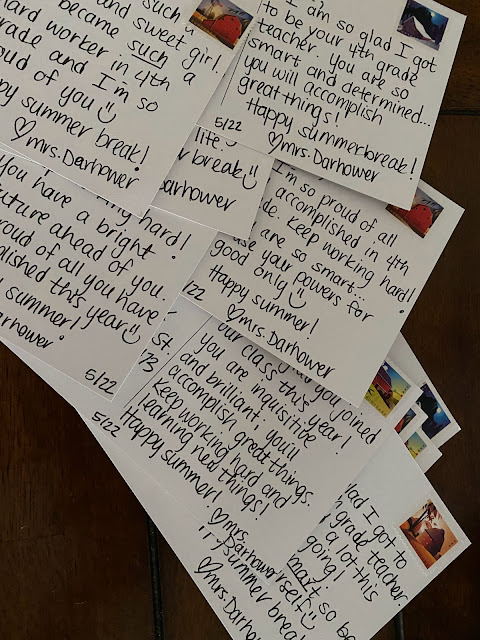 such
and sweet girl.
became such a
hard worker in 4th
grade and I'm so
proud of you
happy summer break!
♡mrs. Darhower
I am so glad I got
to be your 4th grade
teacher. you are so
smart and determined...
you will accomplish
great things!
Happy summer break!
5/22
♡mrs. Darhower
life.
break
Darhower
hard!
You have a bright
future ahead of you.
proud of all you have
this year
summer!
Darhower
5/22
I'm so proud of all
accomplished in 4th
Keep working hard!
are so smart...
use your powers for
good only
/22
Happy summer!
♡mrs. Darhower
St.
5/22
you joined
our class this year!
you are inquisitive
and brilliant, you'll
accomplish great things.
Keep working hard and
learning new things!
Happy summer!
♡mrs.
Darhower
glad I got to
grade teacher.
a lot this
going!
smart, so
summer
♡mrs. Darhower